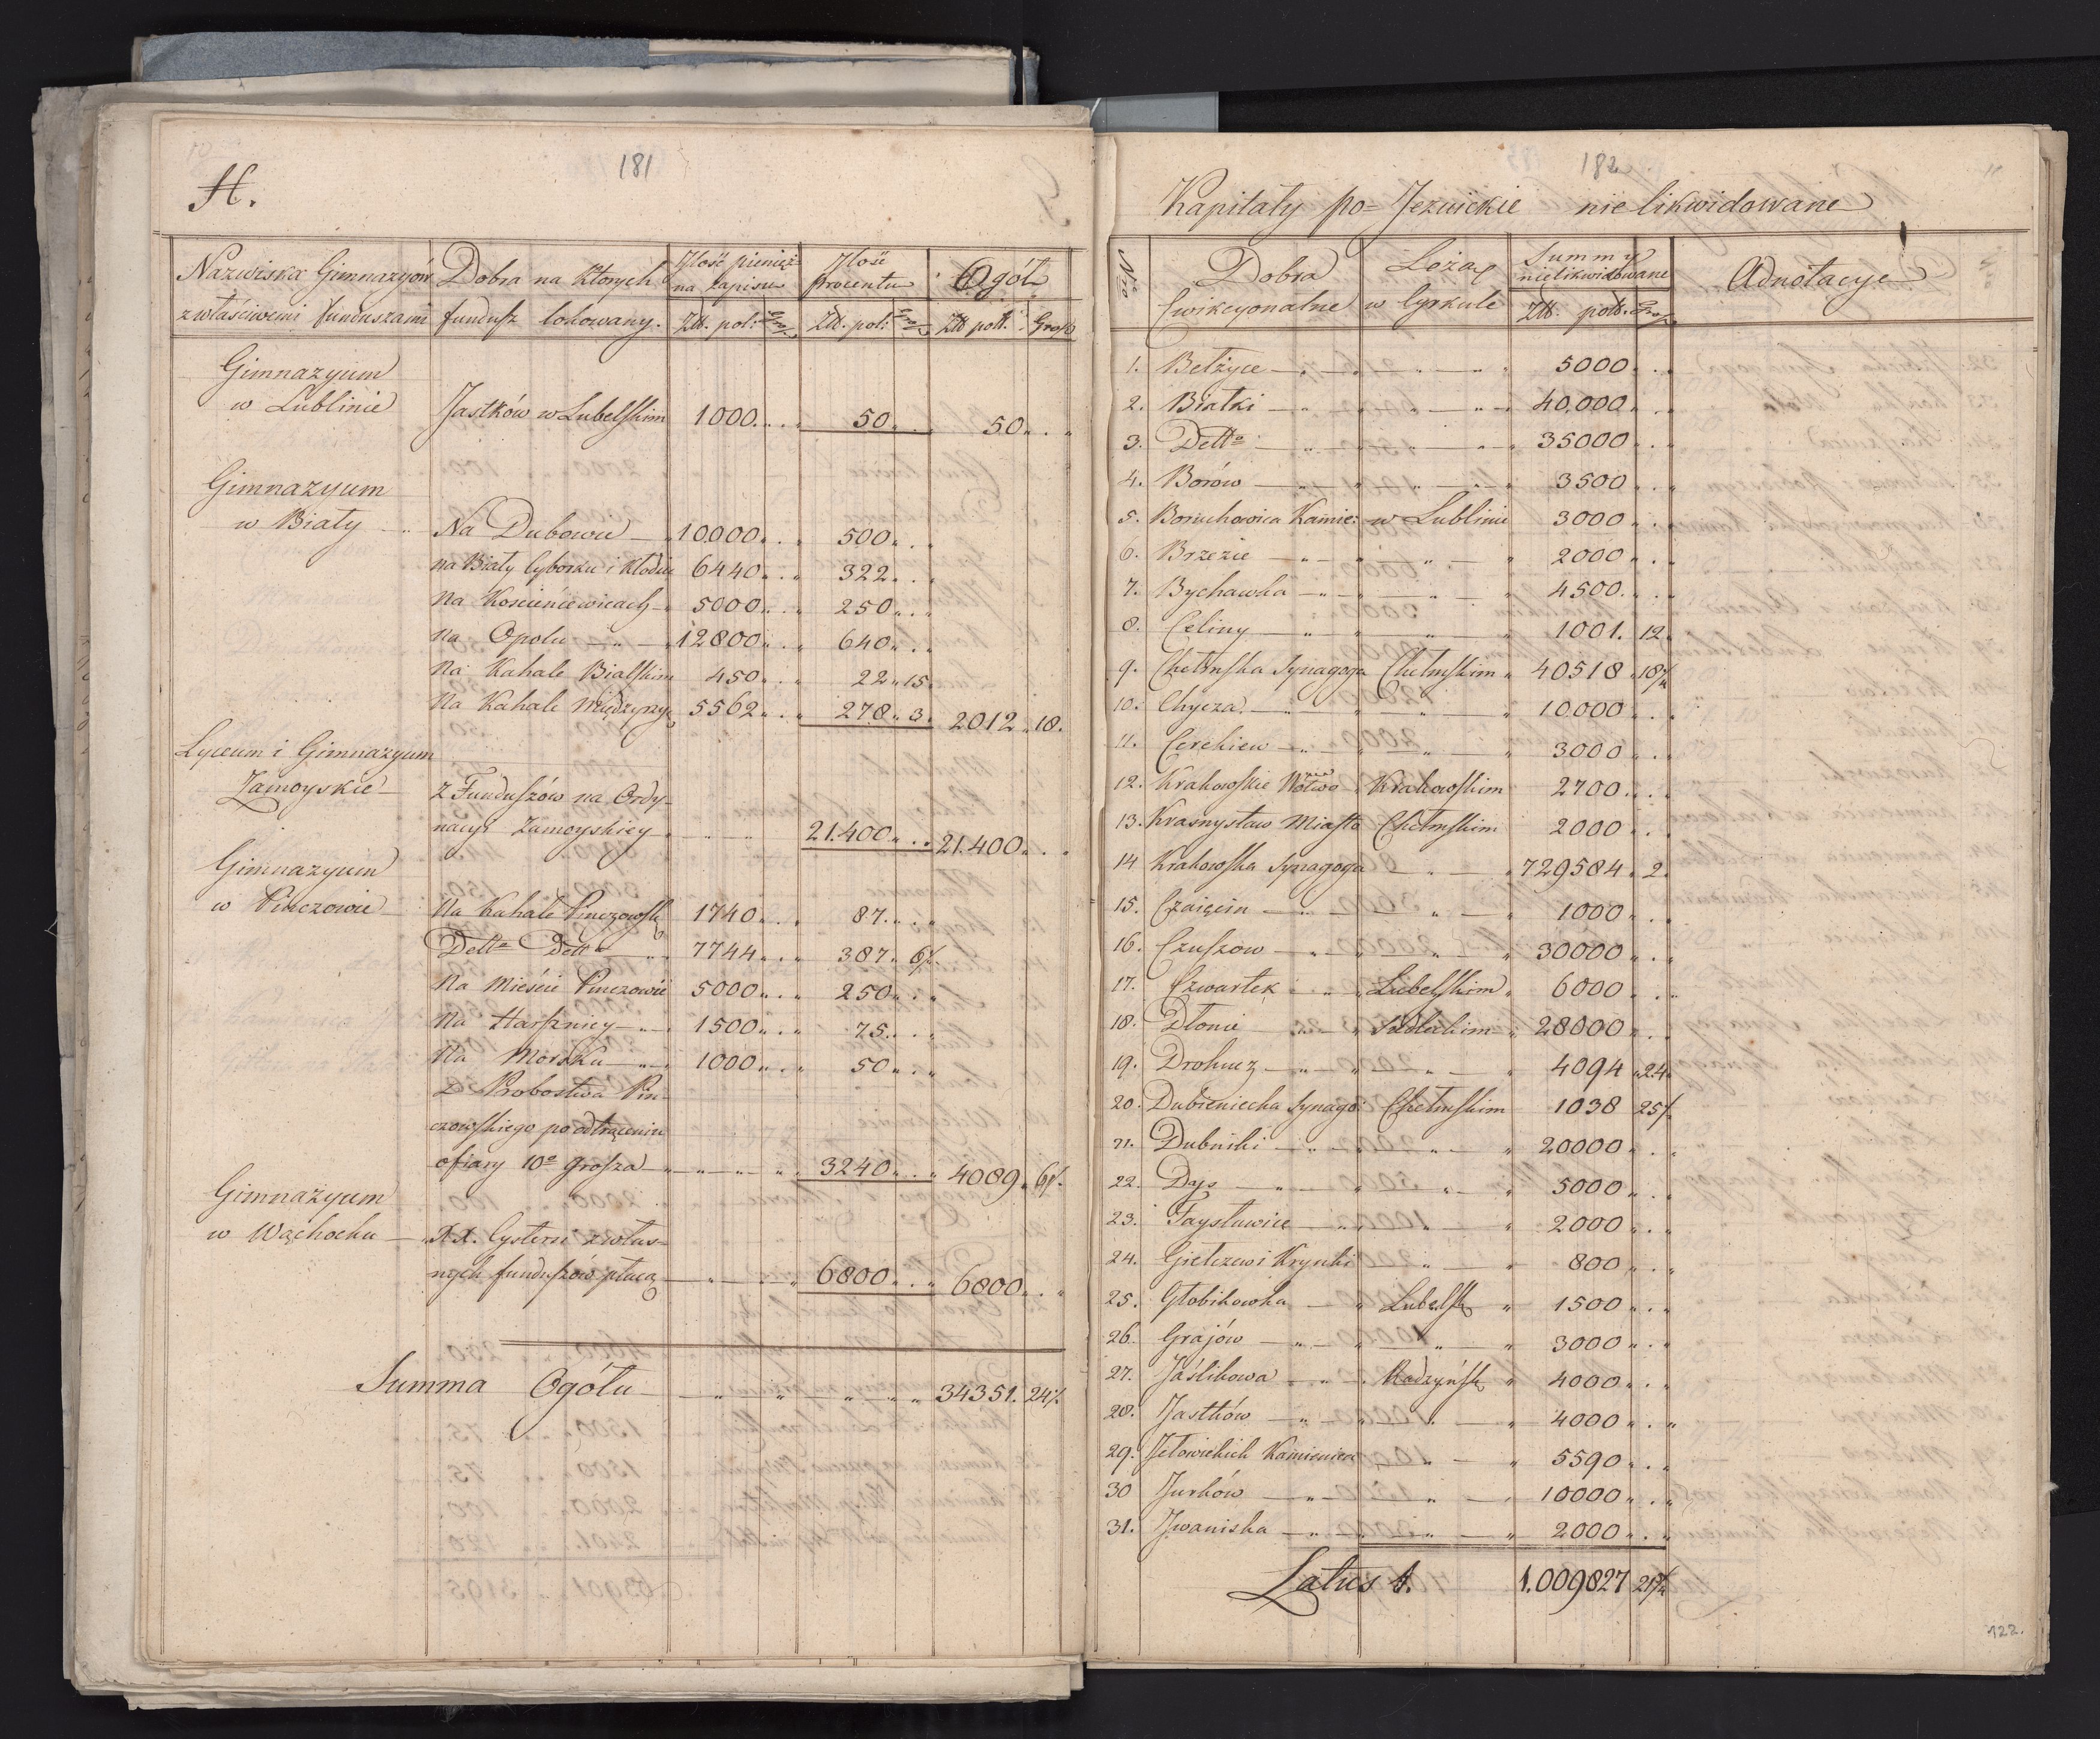 181
H.
Nazwiska Gimnazyów Dobra na których Ilość pienięż: Ilość Ogół
na zapisie procentu
z właściwemi funduszami fundusz lokowany. Złt. pol: Złt. pol: Złt. polł. Grosz
Gimnazyum
w Lublinie Jastków w Lubelskim 1000 50 50
Gimnazyum
w Biały Na Dubowie 10.000 500
na Biały Cyborku i Kłodni 6440 322
Na Kościeniewicach 5000 250
Na Opolu 12800 640
Na Kahale Bialskim 450 22 15
Na Kahale Międzyrzy 5562 278 3 2012 18.
Lyceum i Gimnazyum
Zamoyskie z Funduszów na Ordy-
nacyi Zamoyskiey 21.400 21.400
Gimnazyum
w Pinczowie Na Kahale Pinczowsk 1740 87
Detto Detto 7744 387 6/.
Na Mieście Pinczowie 5000 250
Na Harszniey 1500 75
Na Morsku 1000 50
z Probostwa Pin-
czowskiego po odtrąceniu
ofiary 10o grosza 3240 4089 6/.
Gimnazyum
w Wąchocku XX. Cystersi z włas-
nych funduszów płacą 6800 6800
Summa Ogółu 34351. 24/.
182
Kapitały po=Jezuickie nielikwidowane
Nro Dobra Leżą Summy Adnotacye
nielikwidowane
Ewikcyonalne w Cyrkule Złt. polł.
1. Bełżyce 5000
2. Białki 40.000
3. Detto 35000
4. Borów 3500
5. Boruchowica Kamie: w Lublinie 3000
6. Brzezie 2000
7. Bychawka 4500
8. Celiny 1001. 12
9. Chełmska Synagoga Chełmskim 40518 18
10. Chycza 10.000
11. Cerekiew 3000
12. Krakowskie Wotwo Krakowskim 2700
13. Krasnystaw Miasto Chełmskim 2000
14 Krakowska Synagoga 729584 2
15. Czaięcin 1000
16. Czuszow 30000
17. Czwartek Lubelskim 6000
18. Dłonie Siedleckim 28000
19. Drohucz 4094 24
20. Dubieniecka Synago: Chełmskim 1038 25/.
21. Dubniki 20000
22. Dys 5000
23. Faysławice 2000
24. Giełczew i Krynki 800
25. Głobikowka Lubelsk 1500
26. Grajów 3000
27. Jaślikowa Radzyńsk 4000
28. Jastków 4000
29. Jełowickich Kamienica 5590
30 Jurków 10000
31. Jwaniska 2000
Latus 1. 1.009827 21
122.